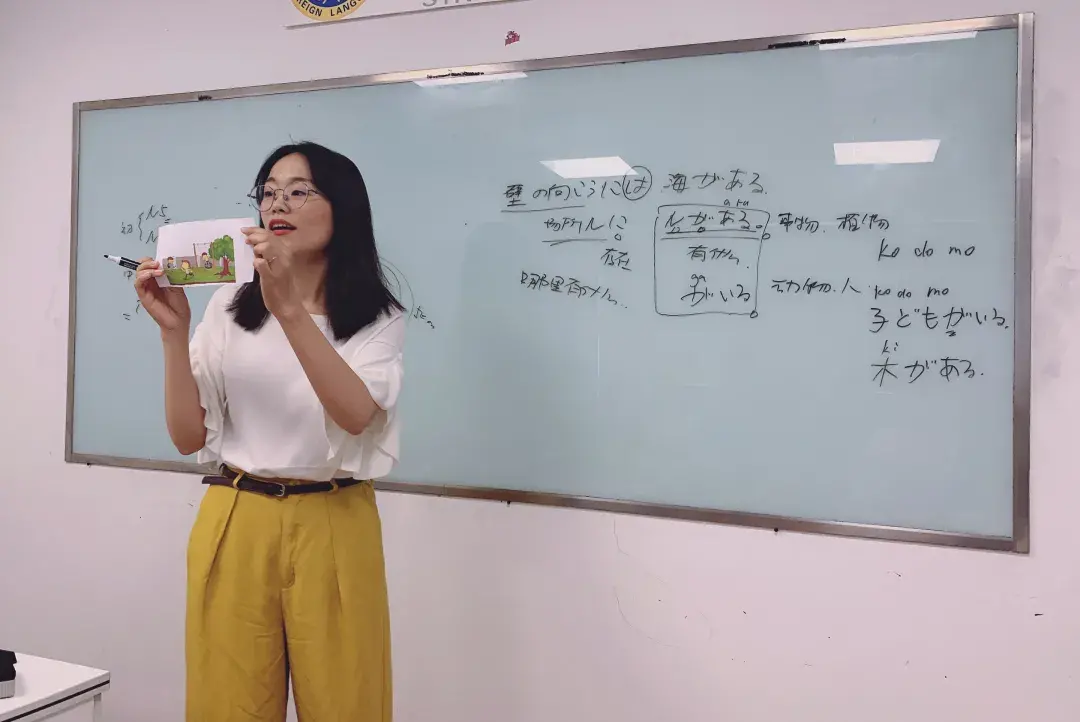 EIGN LANG
N5
壁の向こうには 海がある。
場所Nに
存在
哪里有什么.
a ru
Nがある。
有什么.
ga
がいる
事物. 植物
动物. 人
ko do mo
ko do mo
子どもがいる.
ki
木がある.